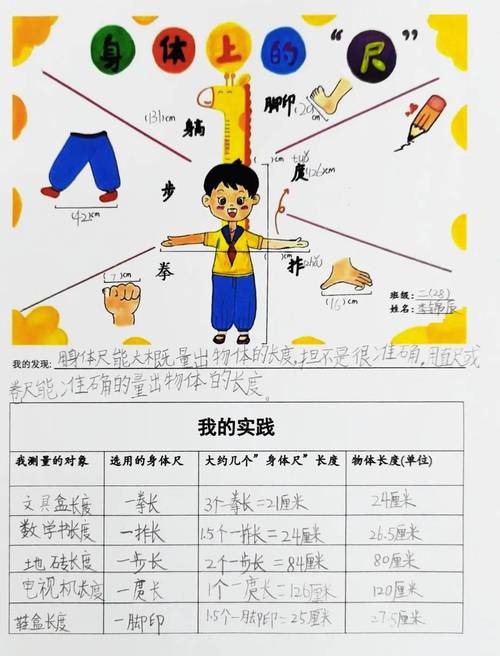 身体上的“尺”
(131)cm
身高
脚印
(20)cm
tuǒ
度
(126)cm
步
(42)cm
拳
(7)cm
拃(zhǎ)
(16)cm
班级:二(28)
姓名:
我的发现:用身体尺能大概量出物体的长度,但不是很准确。用直尺或
卷尺能准确的量出物体的长度。
我的实践
我测量的对象 选用的身体尺 大约几个”身体尺”长度 物体长度(单位)
文具盒长度 一拳长 3个一拳长=21厘米 24厘米
数学书长度 一拃长 1.5个一拃长=24厘米 26.5厘米
地砖长度 一步长 2个一步长=84厘米 80厘米
电视机长度 一庹长 1个一庹长=126厘米 120厘米
鞋盒长度 一脚印 1.5个一脚印=25厘米 27.5厘米